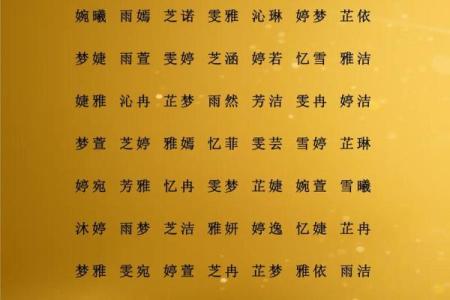 婉曦 雨嫣 芝诺 雯雅 沁琳 婷梦 芷依
梦婕 雨萱 雯婷 芝涵 婷若 忆雪 雅洁
婕雅 沁冉 芷梦 雨然 芳洁 雯冉 婷洁
梦萱 芝婷 雅嫣 忆菲 雯芸 雪婷 芷琳
婷宛 芳雅 忆冉 雯梦 芷婕 婉萱 雪曦
沐婷 雨梦 芝洁 雅妍 婷逸 忆婕 芷冉
梦雅 雯宛 婷萱 芝冉 芷梦 雅依 雨洁